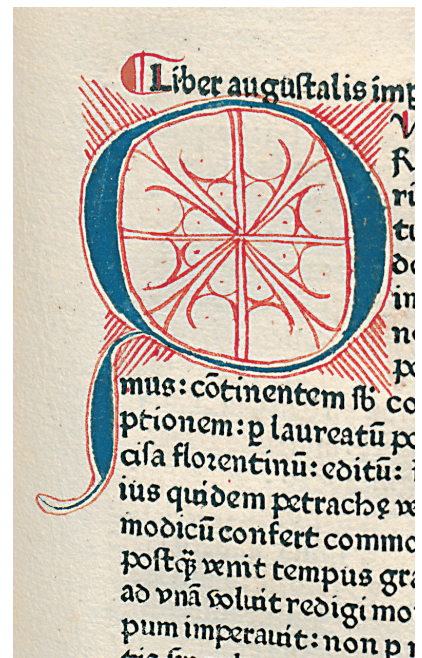 Liber augustalis imp
Q V
R
ri
tu
do
in
no
po
mus: cõtinentem sb̃ co
ptionem: p laureatũ po
cisa florentinũ: editũ:
ius quidem petrachę ve
modicũ confert commo
postq̃ȝ venit tempus gra
ad vnã voluit redigi mo
pum imperauit: non p